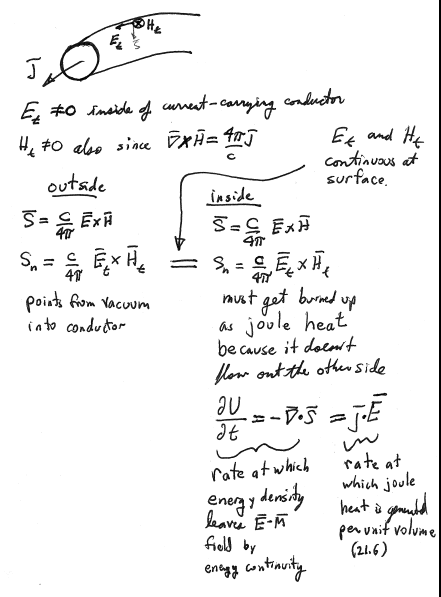 E_t ⊗ H_t
S
J̄
E_t ≠0 inside of current-carrying conductor
H_t ≠0 also since ∇̄×H̄ = 4π/c J̄
E_t and H_t
continuous at
surface.
outside
S̄ = c/4π Ē×H̄
S_n = c/4π Ē_t × H̄_t
points from vacuum
into conductor
=
inside
S̄ = c/4π Ē×H̄
S_n = c/4π Ē_t × H̄_t
must get burned up
as joule heat
because it doesnt
flow out the other side
∂U/∂t = -∇̄·S̄ = j̄·Ē
rate at which
energy density
leaves Ē-M̄
field by
energy continuity
rate at
which joule
heat is generated
per unit volume
(21.6)